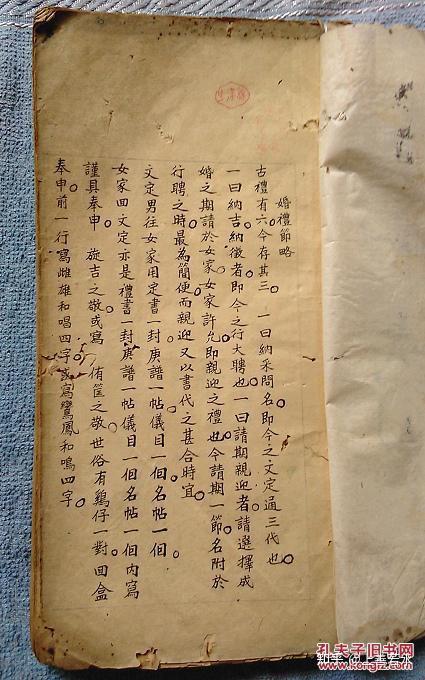 婚禮節略
古禮有六今存其三 一曰納采問名即今之文定通三代也
一曰納吉納徵者即今之行大聘也一曰請期親迎者請選擇成
婚之期請於女家女家許允即親迎之禮也今請期一節名附於
行聘之時最為簡便而親迎又以書代之甚合時宜
文定男往女家用定書一封庚譜一帖儀目一個名帖一個
女家回文定亦是禮書一封庚譜一帖儀目一個名帖一個內寫
謹具奉申 旋吉之敬或寫 侑筐之敬世俗有鷄仔一對回盒
奉申前一行寫雌雄和唱四字或寫鸞鳳和鳴四字
孔夫子旧书网